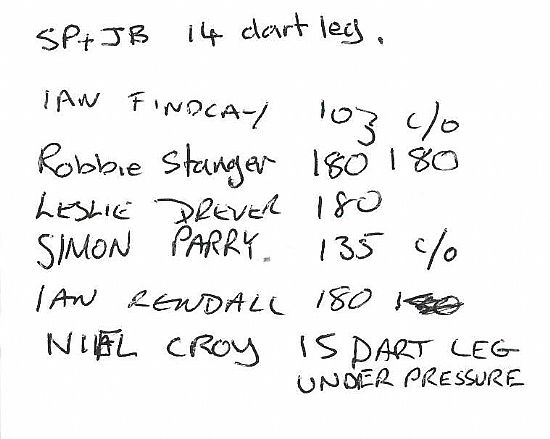 SP+JB 14 dart leg.
IAN FINDLAY 103 c/o
Robbie Stanger 180 180
LESLIE DREVER 180
SIMON PARRY. 135 c/o
IAN RENDALL 180
NIAL CROY 15 DART LEG
UNDER PRESSURE